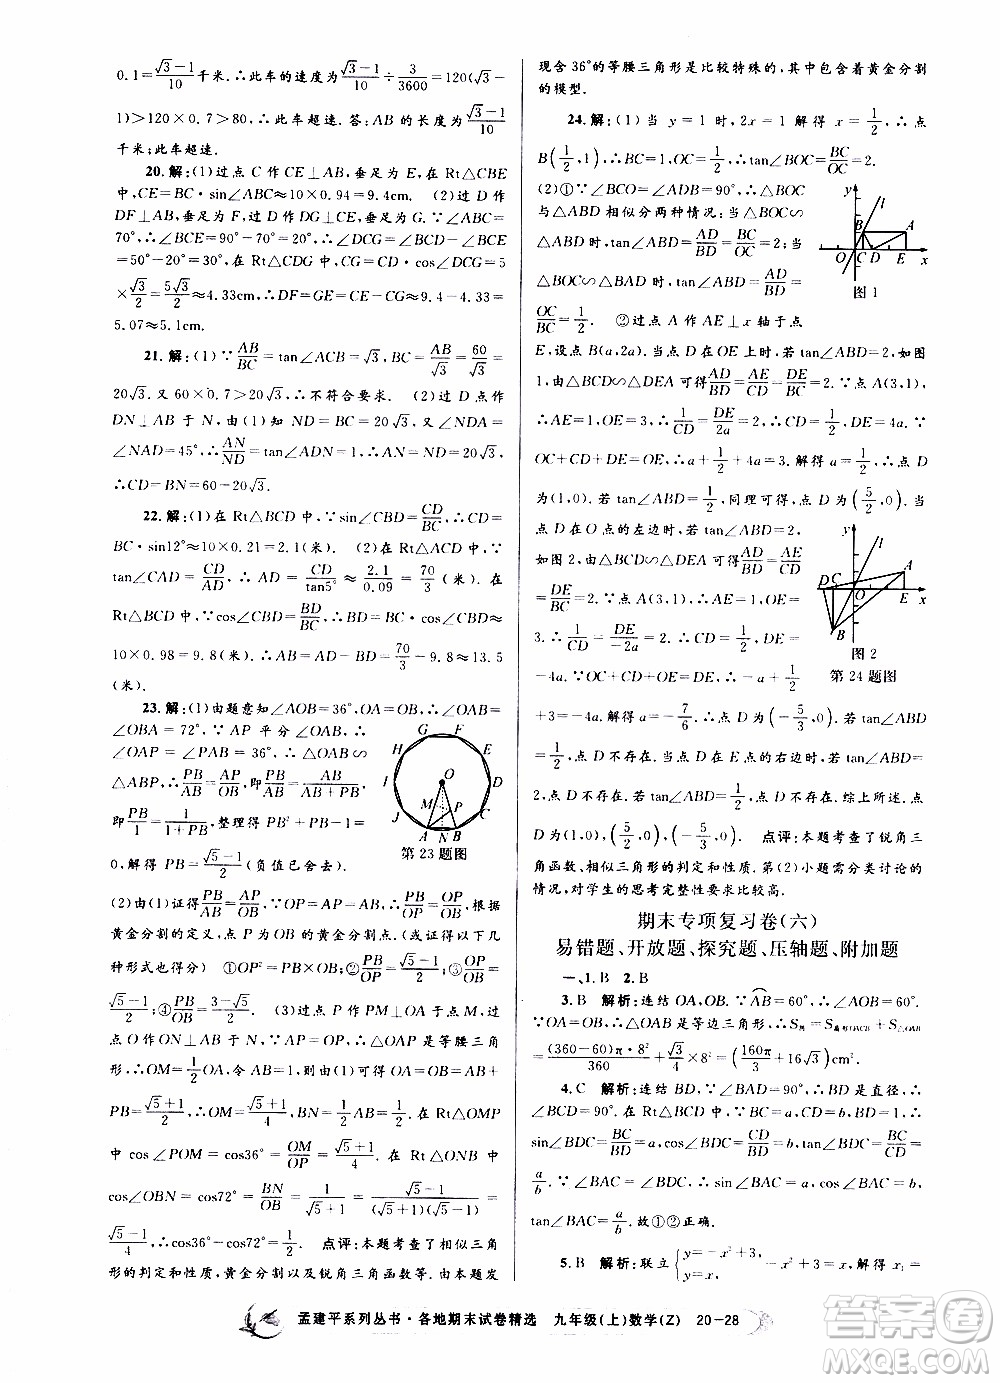 0.1=(√3-1)/10千米.∴此车的速度为(√3-1)/10÷3/3600=120(√3-
1)>120×0.7>80,∴此车超速.答:AB的长度为(√3-1)/10
千米;此车超速.
20.解:(1)过点C作CE⊥AB,垂足为E,在Rt△CBE
中,CE=BC·sin∠ABC≈10×0.94=9.4cm. (2)过D作
DF⊥AB,垂足为F,过D作DG⊥CE,垂足为G.∵∠ABC=
70°,∴∠BCE=90°-70°=20°,∴∠DCG=∠BCD-∠BCE=
50°-20°=30°,在Rt△CDG中,∴CG=CD·cos∠DCG=5
×√3/2=5√3/2≈4.33cm,∴DF=GE=CE-CG=9.4-4.33=
5.07≈5.1cm.
21.解:(1)∵AB/BC=tan∠ACB=√3,BC=AB/√3=60/√3=
20√3.又∵17.5×2=35>20√3,∴不符合要求. (2)过点D作
DN⊥AB于N,由(1)知ND=BC=20√3.又∵∠MDA=
∠NAD=45°,∴AN/ND=tan∠ADN=1,∴AN=ND=20√3.
∴CD=BN=60-20√3.
22.解:(1)在Rt△BCD中,∵sin∠CBD=CD/BC,∴CD=
BC·sin12°≈10×0.21=2.1(米). (2)在Rt△ACD中,∵
tan∠CAD=CD/AD,∴AD=CD/tan5°≈2.1/0.09=70/3(米).在
Rt△BCD中,∵cos∠CBD=BD/BC,∴BD=BC·cos∠CBD≈
10×0.98=9.8(米).∴AB=AD-BD≈70/3-9.8≈13.5
(米).
23.解:(1)由题意知∠AOB=36°,OA=OB,∴∠OAB=
∠OBA=72°.∵AP平分∠OAB,
∴∠OAP=∠PAB=36°,∴△OAB∽
△ABP,∴PB/AB=AP/OB,即PB/AB=AB/OB,
即PB/1=1/(1+PB),整理得PB²+PB-1=
0,解得PB=(√5-1)/2(负值已舍去).
第23题图
(2)由(1)证得PB/AB=AP/OB,∵AB=AP=OP,∴PB/OP=OP/OB,根据
黄金分割的定义,点P为OB的黄金分割点. (4)(以下有以下几
种形式可得分)①OP²=PB·OB;②PB/OP=(√5-1)/2;③OP/OB=
(√5-1)/2;④PB/OB=(3-√5)/2. (3)过点P作PM⊥OA于M,过
点O作ON⊥AB于N,∵△AOP和△AOB都是等腰三角
形,∴AN=1/2AB=1/2,OM=1/2OA.∵OA=OB=OP+
PB=(√5+1)/2,∴OM=(√5+1)/4,ON⊥AB.∴在Rt△OMP
中cos∠POM=cos36°=OM/OP=(√5+1)/4,在Rt△ONB中
cos∠OBN=cos72°=BN/OB=1/(√5+1)=(√5-1)/((√5+1)(√5-1))=
(√5-1)/4,∴cos36°-cos72°=1/2. 点评:本题考查了相似三角
形的判定和性质,黄金分割以及锐角三角函数等.由本题发
现含36°的等腰三角形是比较特殊的,其中包含着黄金分割
的模型.
24.解:(1)当y=1时,2x=1解得x=1/2,∴点
B(1/2,1),∴BC=1,OC=1/2,∴tan∠BOC=BC/OC=2.
(2)①∵∠BCO=∠ADB=90°,∴△BOC
与△ABD相似分两种情况:当△BOC∽
△ABD时,tan∠BAD=AD/BD=BC/OC=2;当
△BOC∽△BAD时,tan∠BAD=BD/AD=
OC/BC=1/2. ②过点A作AE⊥x轴于点
图1
E,设点B(a,2a).当点D在OE上时,若tan∠ABD=2,如图
1,由△BCD∽△DEA可得AD/BD=AE/CD=DE/BC=2.∵点A(3,1),
∴AE=1,OE=3.∴1/CD=DE/2a=2.∴CD=1/2,DE=4a.∵
OC+CD+DE=OE,∴a+1/2+4a=3.解得a=1/2.∴点D
为(1,0).若tan∠ABD=1/2,同理可得,点D为(5/2,0).当
点D在O点的左边时,若tan∠ABD=2,
如图2,由△BCD∽△DEA,可得AD/BD=AE/CD
=DE/BC=2.∵点A(3,1),∴AE=1,OE=
3.∴1/CD=DE/-2a=2.∴CD=1/2,DE=
-4a.∵OC+CD=DE-OE,∴-a+1/2
图2
第24题图
+3=-4a.解得a=-7/6.∴点D为(-5/3,0).若tan∠ABD
=1/2,点D不存在.当点D在E点的右边时,若tan∠ABD=
2,点D不存在,若tan∠ABD=1/2,点D不存在.综上所述,点
D为(5/2,0),(1,0)或(-5/3,0). 点评:本题考查了锐角三
角函数、相似三角形的判定和性质.第(2)小题需分类讨论的
情况,对学生的思考完整性要求比较高.
期末专项复习卷(六)
易错题、开放题、探究题、压轴题、附加题
一、1.B 2.B
3.B 解析:连结OA,OB.∵AB=60°,∴∠AOB=60°.
∵OA=OB,∴△OAB是等边三角形,∴S=S扇形OACB+S△OAB
=(360-60)π·8²/360+√3/4×8²=(160π/3+16√3)cm².
4.C 解析:连结BD,∵∠BAD=90°,∴BD是直径,∴
∠BCD=90°.∵AB=AD=BC=a,CD=b,BD=1,∴
sin∠BDC=BC/BD=a,cos∠BDC=CD/BD=b,tan∠BDC=BC/CD=
a/b.∵∠BAC=∠BDC,∴sin∠BAC=a,cos∠BAC=b,
tan∠BAC=a/b.故①②正确.
5.B 解析:联立{y=-x²+3, y=-x+3.解得x₁
孟建平系列丛书·各地期末试卷精选 九年级(上)数学(Z) 20-28
答案圈
MXQE.COM